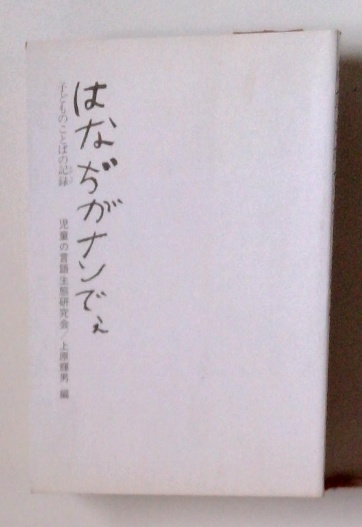 はなぢがナンでぇ
子どものことばの記録
児童の言語生態研究会/上原輝男 編